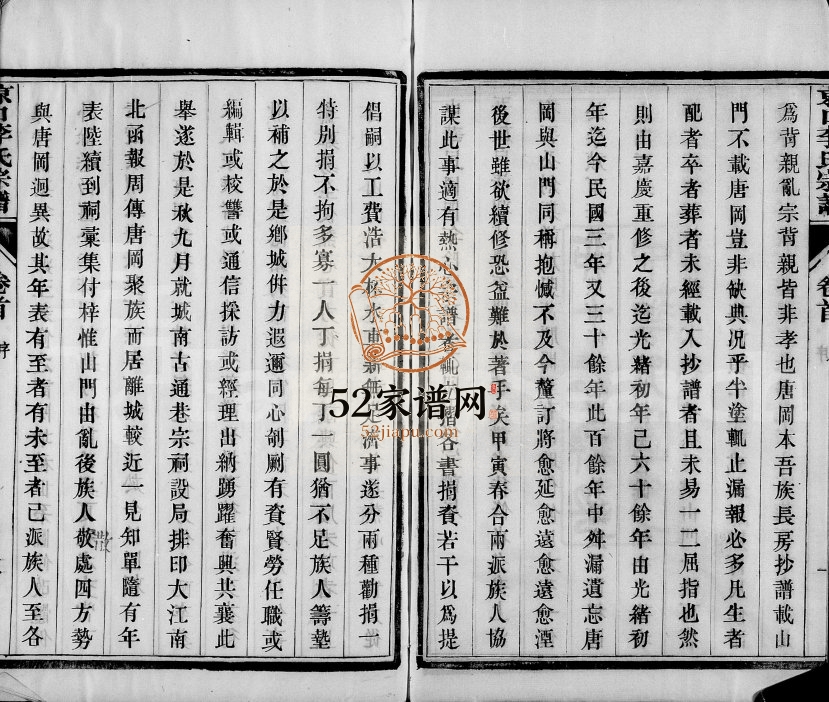 爲背親亂宗背親皆非孝也唐岡本吾族長房抄譜載山
門不載唐岡豈非缺典况乎半塗輒止漏報必多凡生者
配者卒者葬者未經載入抄譜者且未易一二屈指也然
則由嘉慶重修之後迄光緒初年己六十餘年由光緒初
年迄今民國三年又三十餘年此百餘年中舛漏遺忘唐
岡與山門同稱抱憾不及今釐訂將愈延愈遠愈遠愈湮
後世雖欲續修恐益難於著手矣甲寅春合兩派族人協
謀此事適有熱心 譜 各書捐資若干以爲提
倡嗣以工費浩大 水車薪無 濟事遂分兩種勸捐一
特別捐不拘多寡一人丁捐每丁一圓猶不足族人籌墊
以補之於是鄉城併力遐邇同心剞劂有資賢勞任職或
編輯或校讐或通信採訪或經理出納踴躍奮興共襄此
舉遂於是秋九月就城南古通巷宗祠設局排印大江南
北函報周傳唐岡聚族而居離城較近一見知單隨有年
表陸續到祠彙集付梓惟山門由亂後族人散處四方勢
與唐岡迥異故其年表有至者有未至者己派族人至各
李氏宗譜
卷首
序
52家谱网
52jiapu.com
散